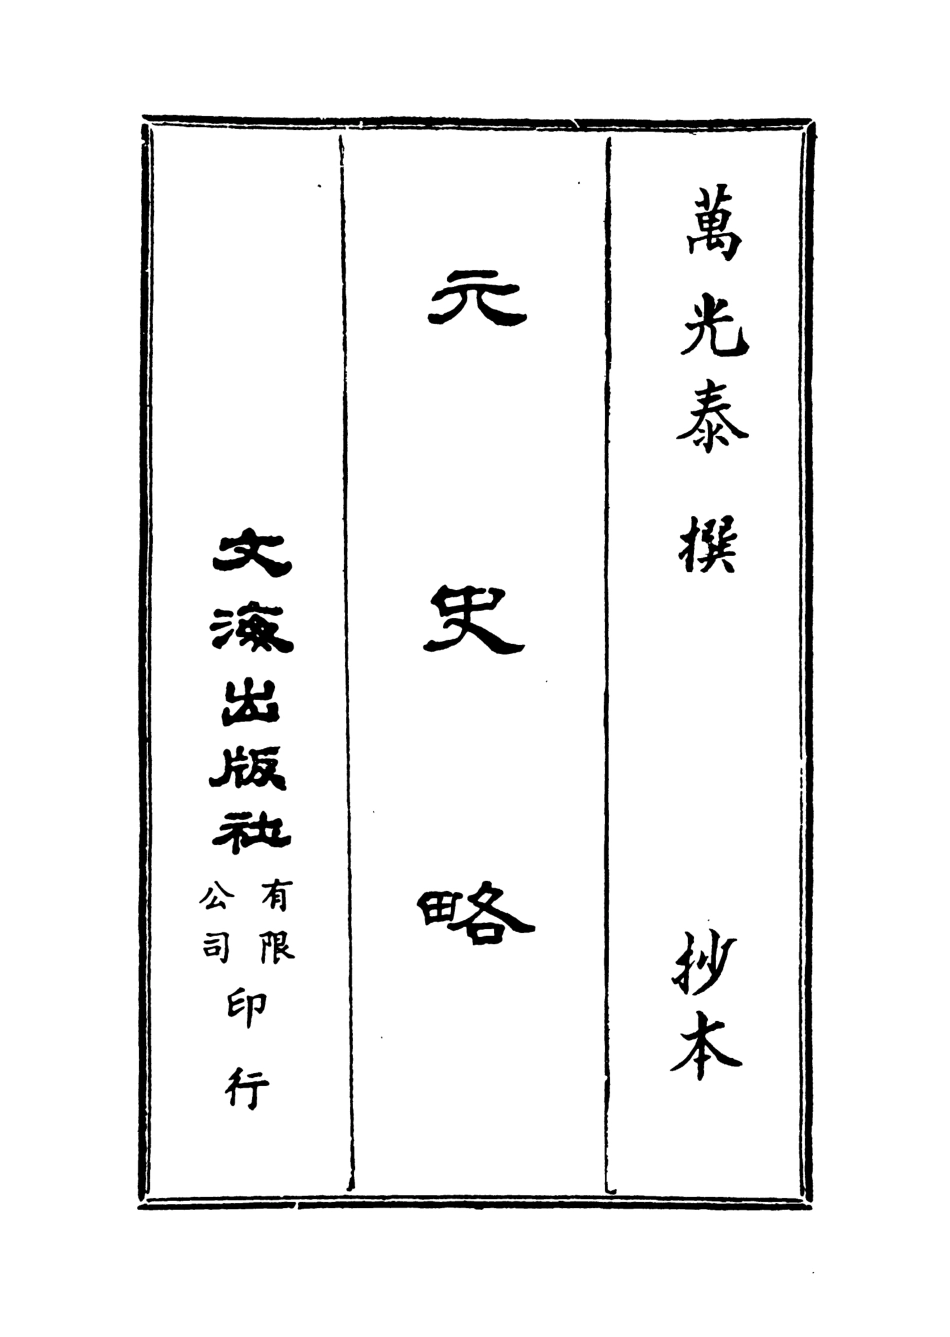 萬光泰 撰 抄本
元史略
文海出版社有限公司印行